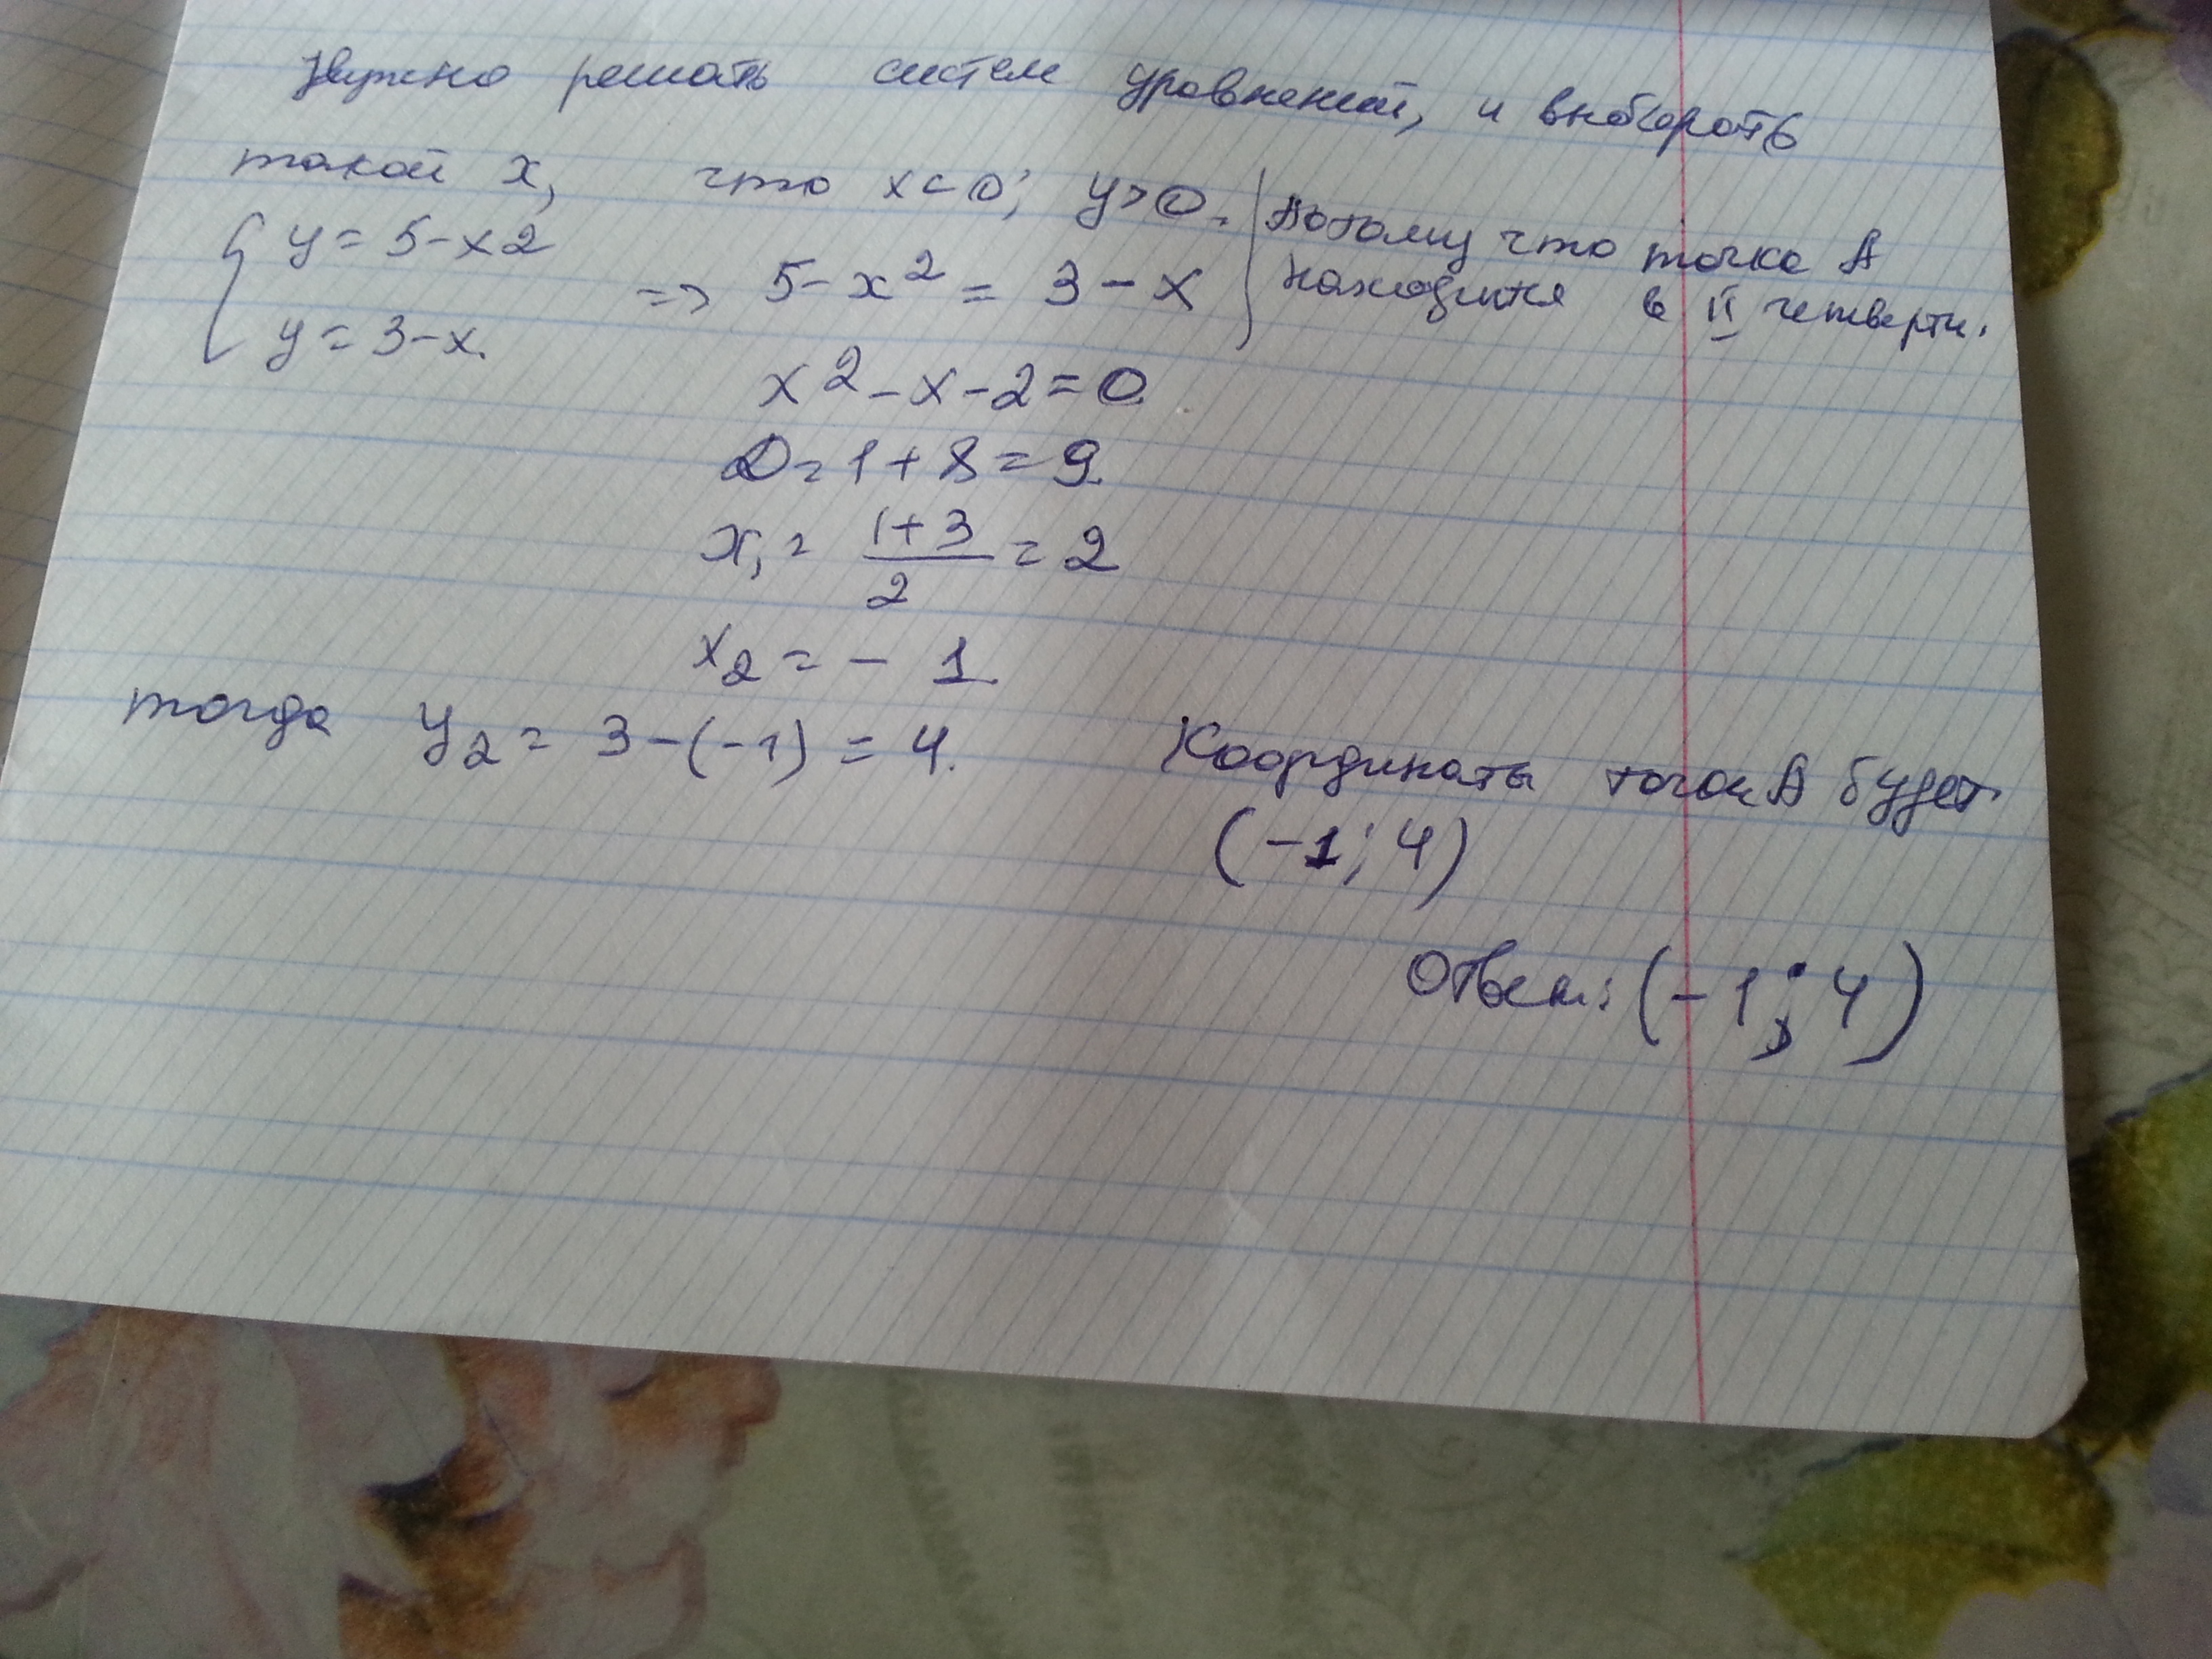 Нужно решать систем уравнений, и выбирать
такой x, что x<0; y>0.
Потому что точка А
находится в II четверти.
y = 5-x2
=> 5-x² = 3-x
y = 3-x.
x²-x-2=0
D=1+8=9.
x₁ = (1+3)/2 = 2
x₂ = - 1
тогда y₂ = 3-(-1) = 4.
Координаты точки А будет
(-1; 4)
Ответ: (-1; 4)